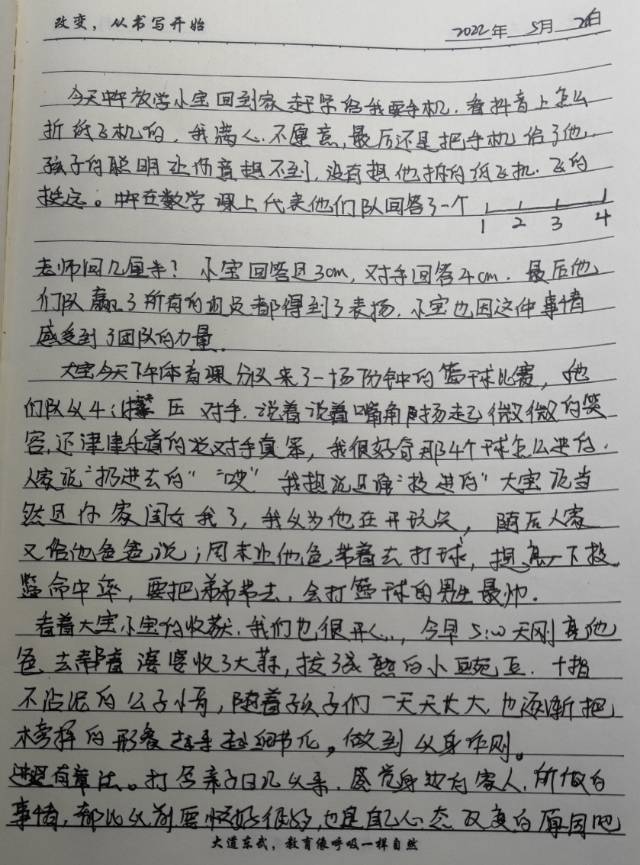 改变，从书写开始
2022年 5月 2日
今天中午放学小宝回到家赶紧给我要手机.看抖音上怎么
折纸飞机的，我满心不愿意,最后还是把手机给了他,
孩子的聪明让你意想不到,没有想他折的纸飞机.飞的
挺远。中午在数学课上代表他们队回答了一个
1 2 3 4
老师问几厘米？小宝回答是3cm,对手回答4cm.最后他
们队赢了所有的成员都得到了表扬.小宝也因这件事情
感受到了团队的力量.
大宝今天下午体育课分队来了一场 分钟的篮球比赛，他
们队以4:1 压对手.说着说着嘴角附扬起微微的笑
容,还津津乐道的说对手真笨，我很好奇那4个球怎么进的.
人家说"扔进去的""哎"我想说是译"投进的"大宝说当
然是你家闺女我了,我以为他在开玩笑,随后人家
又给他爸爸说;周末让他爸带着去打球,提高一下投
篮命中率,要把弟弟带去,会打篮球的男生最帅.
看着大宝小宝的收获.我们也很开心..,今早5:00天刚亮他
爸去帮着婆婆收了大蒜,拔了成熟的小豌豆.十指
不沾泥的公子小哥,随着孩子们一天天长大,也逐渐把
榜样的形象 细节化,做到以身作则。
有章法。打卡亲子日记以来.感觉身边的家人,所做的
事情,都比以前要 好很多,也是自己心态改变的原因吧
大道东武，教育像呼吸一样自然